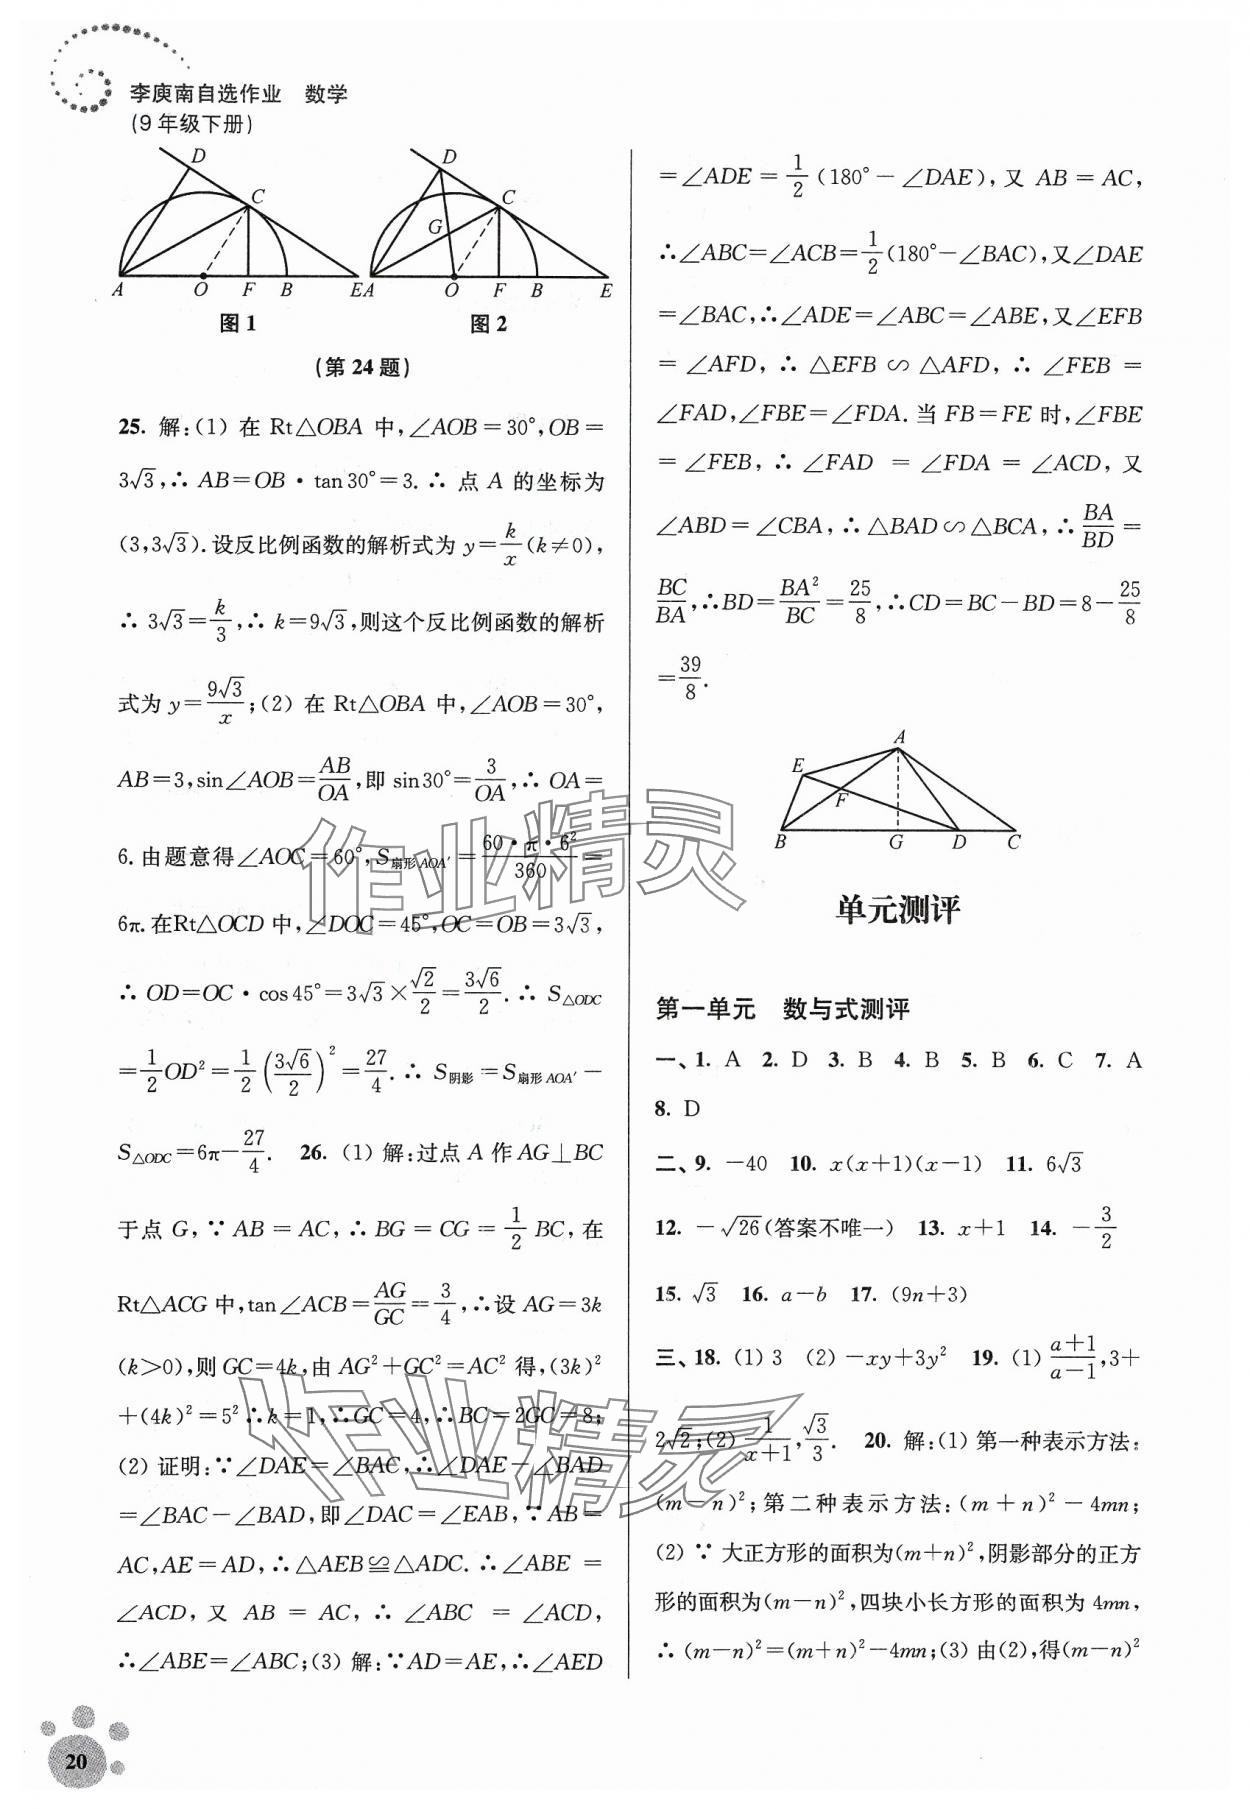 李庾南自选作业　数学
(9年级下册)
D
C
A
O
F
B
E
图1
D
C
G
A
O
F
B
E
图2
(第24题)
25. 解:(1) 在 Rt△OBA 中,∠AOB=30°,OB=
3√3,∴ AB=OB·tan30°=3.∴ 点 A 的坐标为
(3,3√3).设反比例函数的解析式为 y=k/x(k≠0),
∴ 3√3=k/3,∴ k=9√3,则这个反比例函数的解析
式为 y=9√3/x;(2) 在 Rt△OBA 中,∠AOB=30°,
AB=3,sin∠AOB=AB/OA,即 sin30°=3/OA,∴ OA=
6.由题意得∠AOC=60°,S扇形AOA′=60·π·6²/360=
6π.在Rt△OCD 中,∠DOC=45°,OC=OB=3√3,
∴ OD=OC·cos45°=3√3×√2/2=3√6/2.∴ S△ODC
=1/2OD²=1/2(3√6/2)²=27/4.∴ S阴影=S扇形AOA′−
S△ODC=6π−27/4.　26. (1) 解:过点 A 作 AG⊥BC
于点 G,∵ AB=AC,∴ BG=CG=1/2BC,在
Rt△ACG 中,tan∠ACB=AG/GC=3/4,∴设 AG=3k
(k>0),则 GC=4k,由 AG²+GC²=AC² 得,(3k)²
+(4k)²=5²∴k=1,∴GC=4,∴BC=2GC=8;
(2) 证明:∵∠DAE=∠BAC,∴∠DAE−∠BAD
=∠BAC−∠BAD,即∠DAC=∠EAB,∵AB=
AC,AE=AD,∴△AEB≌△ADC.∴∠ABE=
∠ACD,又 AB=AC,∴∠ABC=∠ACD,
∴∠ABE=∠ABC;(3) 解:∵AD=AE,∴∠AED
=∠ADE=1/2(180°−∠DAE),又 AB=AC,
∴∠ABC=∠ACB=1/2(180°−∠BAC),又∠DAE
=∠BAC,∴∠ADE=∠ABC=∠ABE,又∠EFB
=∠AFD,∴△EFB∽△AFD,∴∠FEB=
∠FAD,∠FBE=∠FDA.当 FB=FE 时,∠FBE
=∠FEB,∴∠FAD=∠FDA=∠ACD,又
∠ABD=∠CBA,∴△BAD∽△BCA,∴BA/BD=
BC/BA,∴BD=BA²/BC=25/8,∴CD=BC−BD=8−25/8
=39/8.
A
E
F
B
G
D
C
单元测评
第一单元　数与式测评
一、1. A　2. D　3. B　4. B　5. B　6. C　7. A
8. D
二、9. −40　10. x(x+1)(x−1)　11. 6√3
12. −√26(答案不唯一)　13. x+1　14. −3/2
15. √3　16. a−b　17. (9n+3)
三、18. (1) 3　(2) −xy+3y²　19. (1) a+1/a−1,3+
2√2;(2) 1/x+1,√3/3.　20. 解:(1) 第一种表示方法:
(m−n)²;第二种表示方法:(m+n)²−4mn;
(2) ∵ 大正方形的面积为(m+n)²,阴影部分的正方
形的面积为(m−n)²,四块小长方形的面积为 4mn,
∴ (m−n)²=(m+n)²−4mn;(3) 由(2),得(m−n)²
作业精灵
作业精灵
20